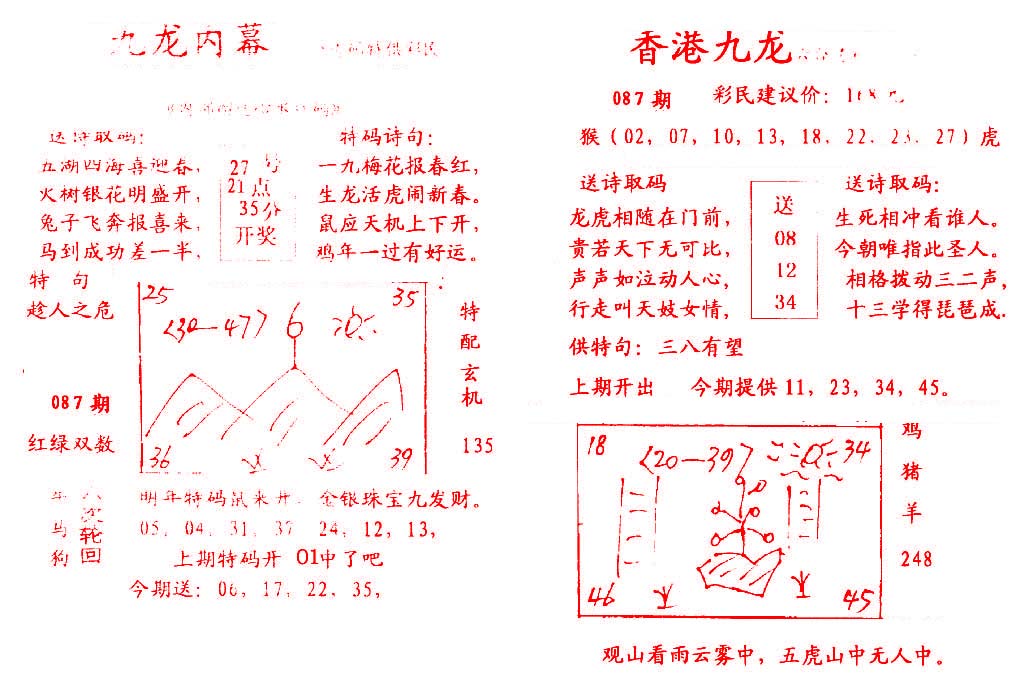 九龙内幕
送诗取码:
五湖四海喜迎春,
火树银花明盛开,
兔子飞奔报喜来,
马到成功差一半,
27 号
21点
35分
开奖
特码诗句:
一九梅花报春红,
生龙活虎闹新春。
鼠应天机上下开,
鸡年一过有好运。
特 句
趁人之危
087期
红绿双数
25
35
<30—477 6
36
39
特
配
玄
机
135
马
狗
六
次
轮
回
明年特码鼠来开. 金银珠宝九发财。
05, 04, 31, 37 24, 12, 13,
上期特码开 01中了吧
今期送: 06, 17, 22, 35,
香港九龙
087期 彩民建议价: 168元
猴(02, 07, 10, 13, 18, 22, 23, 27)虎
送诗取码
龙虎相随在门前,
贵若天下无可比,
声声如泣动人心,
行走叫天妓女情,
送
08
12
34
送诗取码:
生死相冲看谁人。
今朝唯指此圣人。
相格拨动三二声,
十三学得琵琶成.
供特句: 三八有望
上期开出 今期提供11, 23, 34, 45。
18
<20—397
34
46
45
鸡
猪
羊
248
观山看雨云雾中, 五虎山中无人中。